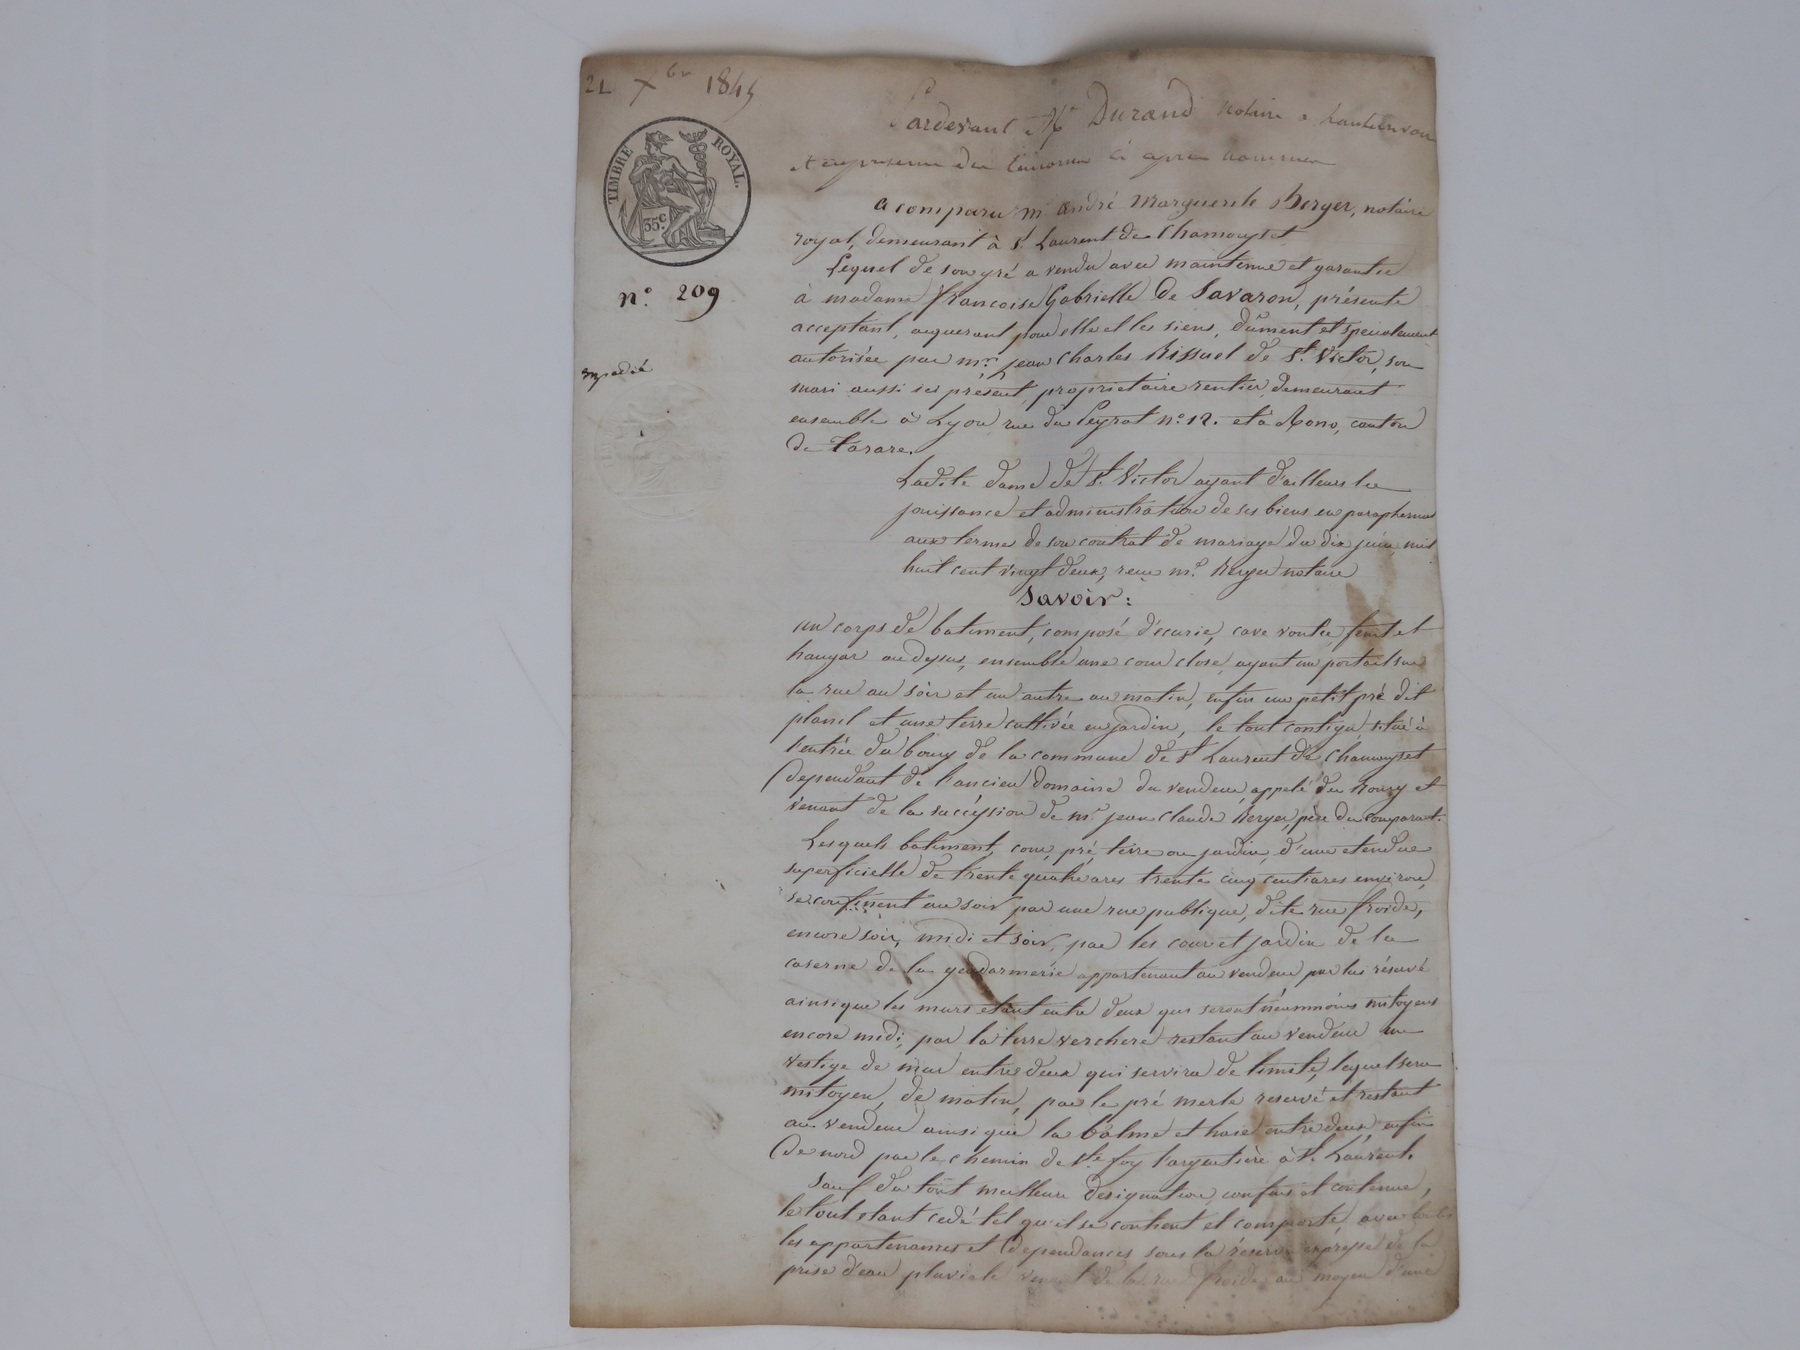 21 Xbr 1845
TIMBRE ROYAL.
35c
n.° 209
expédié
Pardevant Me Durand notaire a
et en presence des temoins ci apres nommés
a comparu mr andré Marguerite Berger, notaire
royal, demeurant à St Laurent de Chamousset
Lequel de son gré a vendu avec maintenue et garantie
à madame françoise Gabrielle de Savaron, présente
acceptant, acquerant pour elle et les siens, dûment et specialement
autorisée par mr. jean Charles Rissuel de St. Victor, son
mari aussi ici présent, proprietaire rentier, demeurant
ensemble à Lyon rue du Peyrat n° 12. et à Rono, canton
de Tarare.
Ladite dame de St. Victor ayant d'ailleurs la
jouissance et administration de ses biens en paraphernal
aux termes de son contrat de mariage du dix juin mil
huit cent vingt deux, reçu me. Berger notaire
Savoir :
un corps de batiment, composé d'écurie, cave voutée, fenil et
hangar au dessus, ensemble une cour close, ayant un portail sur
la rue au soir et un autre au matin, enfin un petit pré dit
planil et une terre cultivée en jardin, le tout contigu situé à
l'entrée du bourg de la commune de St Laurent de Chamousset
dependant de l'ancien domaine du vendeur, appelé du bourg et
venant de la succession de mr jean Claude Berger, père du comparant.
Lesquels batiment, cour, pré, terre ou jardin, d'une etendue
superficielle de trente quatre ares trente cinq centiares environ,
se confinent au soir par une rue publique, dite rue froide,
encore soir, midi et soir, par les cour et jardin de la
caserne de la gendarmerie appartenant au vendeur par lui réservé
ainsi que les murs etant entre deux qui seront néanmoins mitoyens
encore midi, par la terre verchere restant au vendeur un
vestige de mur entre deux qui servira de limite, lequel sera
mitoyen, de matin, par le pré merle reservé et restant
au vendeur ainsi que la balme et haie entre deux, enfin
de nord par le chemin de Ste foy l'argentière à St. Laurent.
Sauf du tout meilleure designation, confins et contenue,
le tout etant cedé tel qu'il se contient et comporte, avec toutes
les appartenances et dependances sous la réserve expresse de la
prise d'eau pluviale venant de la rue froide au moyen d'une